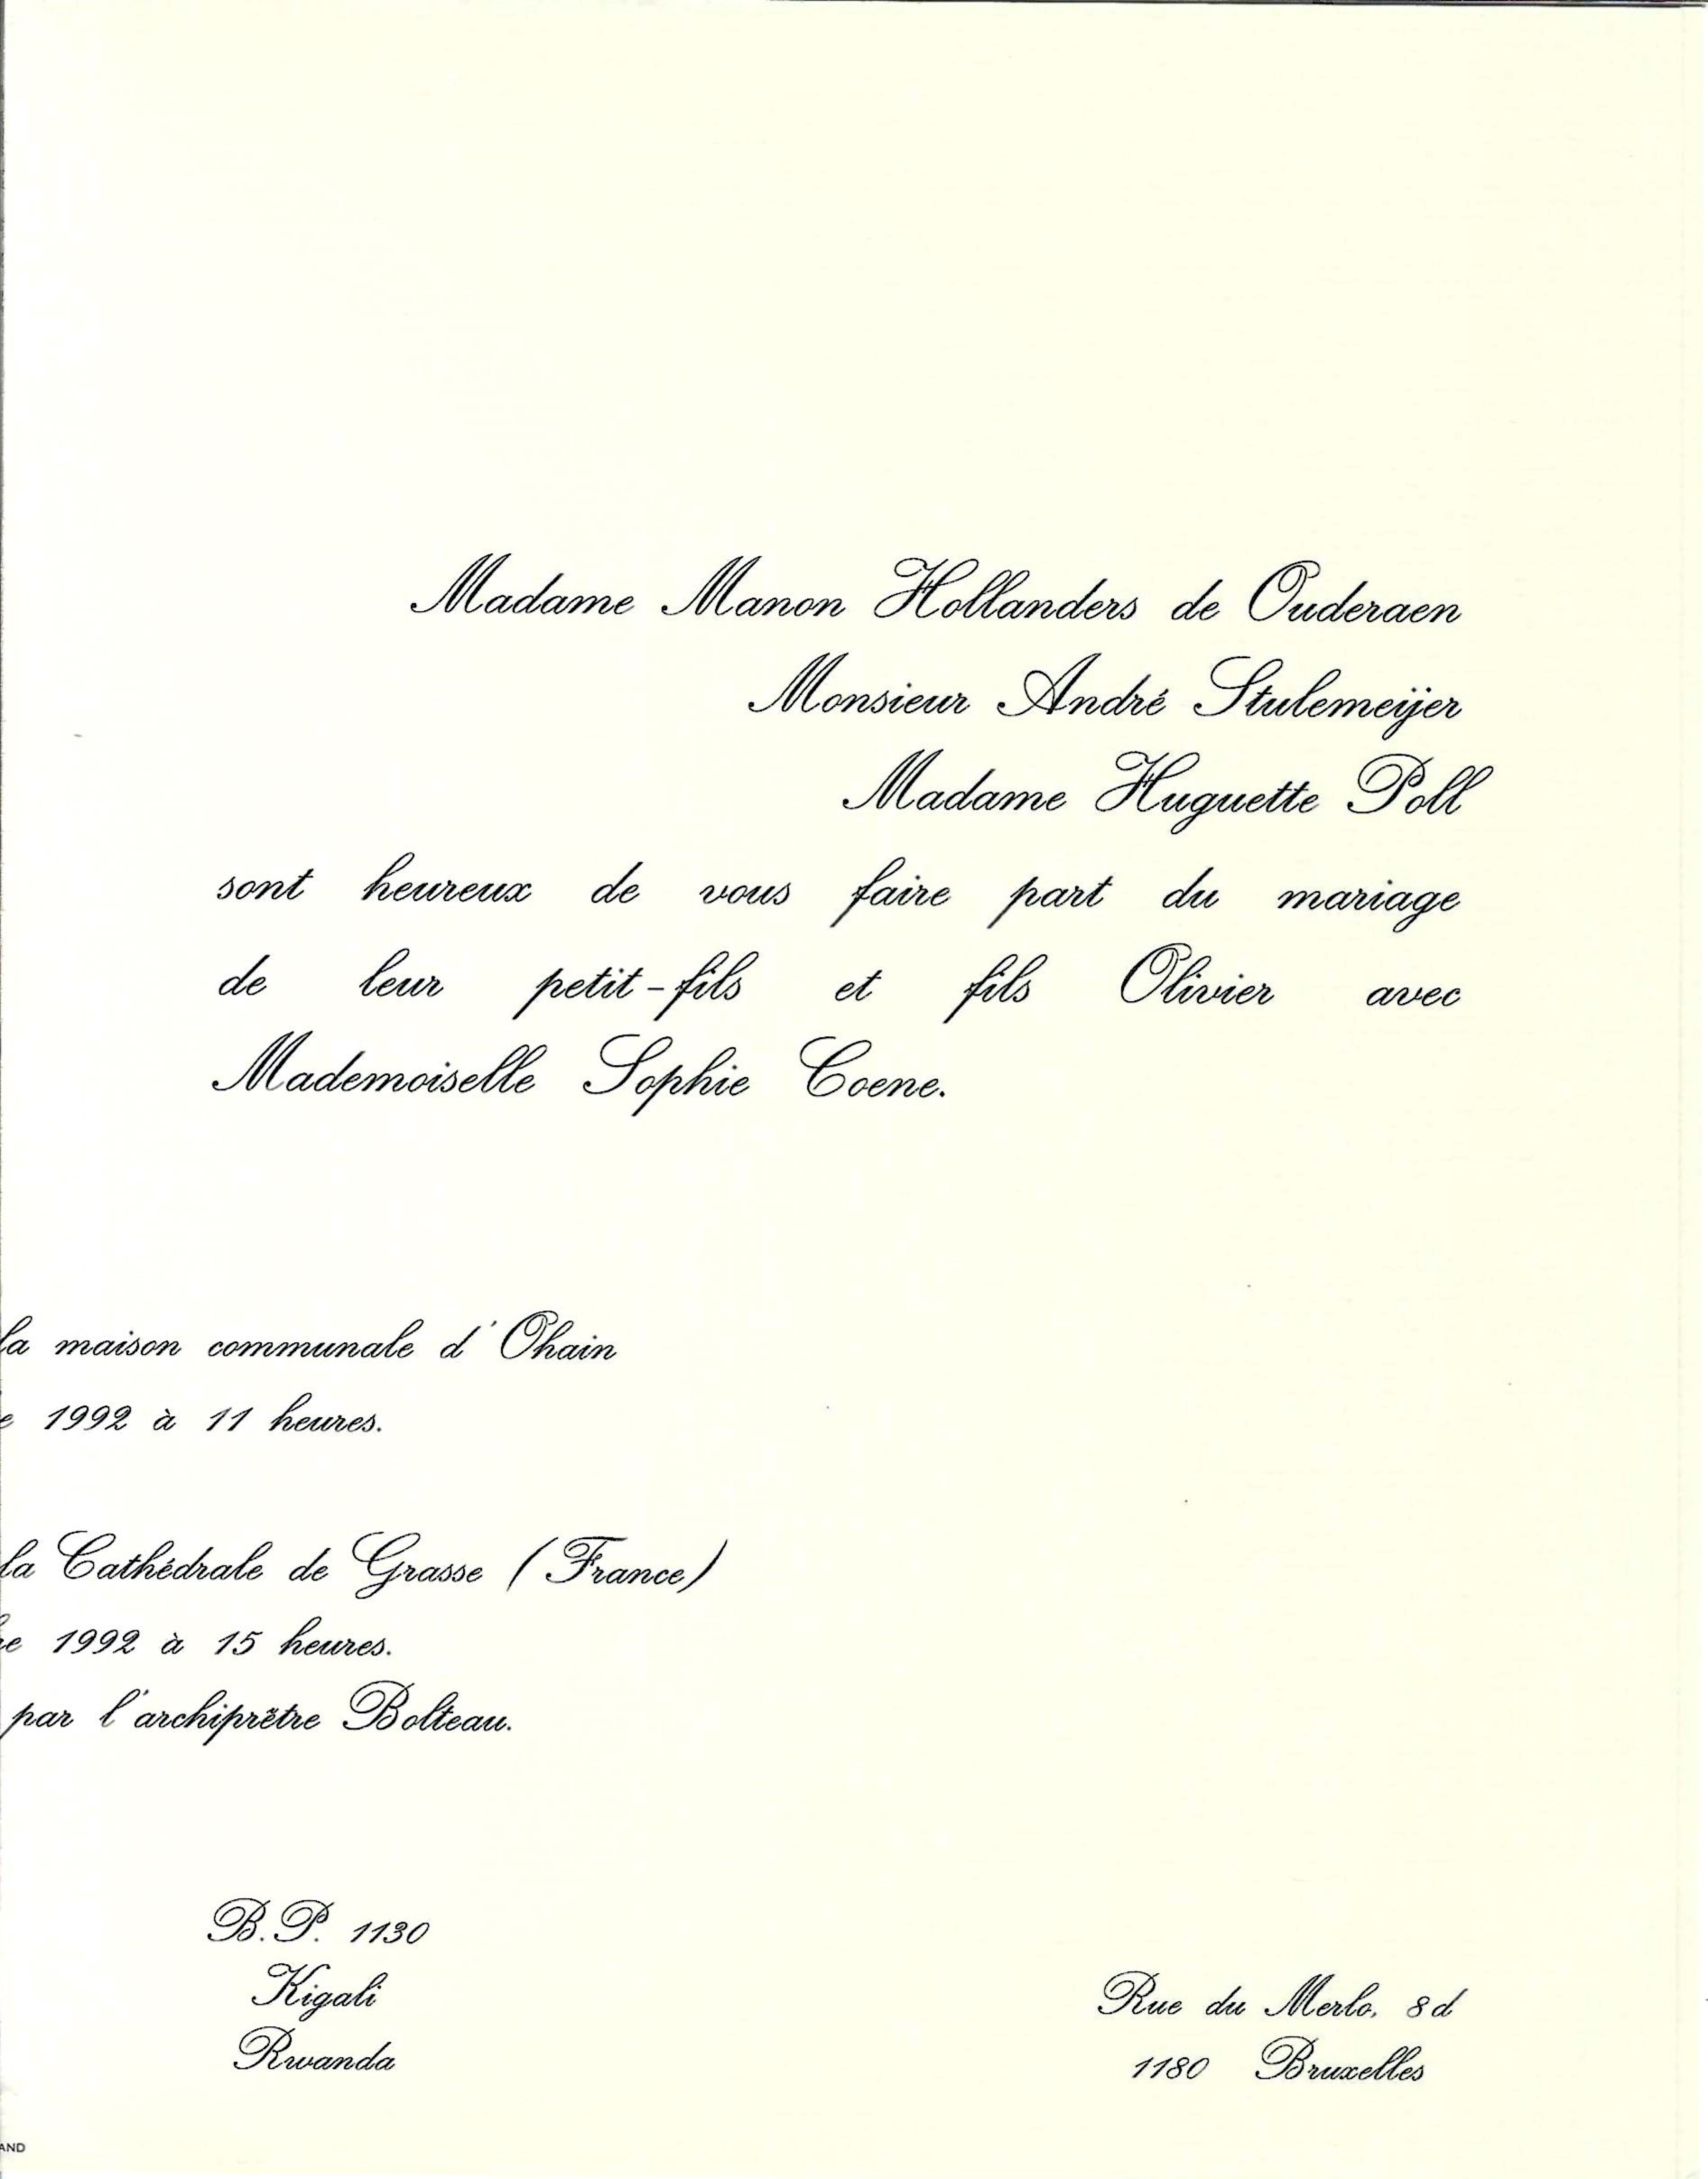 Madame Manon Hollanders de Ouderaen
Monsieur André Stulemeijer
Madame Huguette Poll
sont heureux de vous faire part du mariage
de leur petit-fils et fils Olivier avec
Mademoiselle Sophie Coene.
la maison communale d'Ohain
e 1992 à 11 heures.
la Cathédrale de Grasse (France)
re 1992 à 15 heures.
par l'archiprêtre Bolteau.
B.P. 1130
Kigali
Rwanda
Rue du Merlo, 8d
1180 Bruxelles
AND